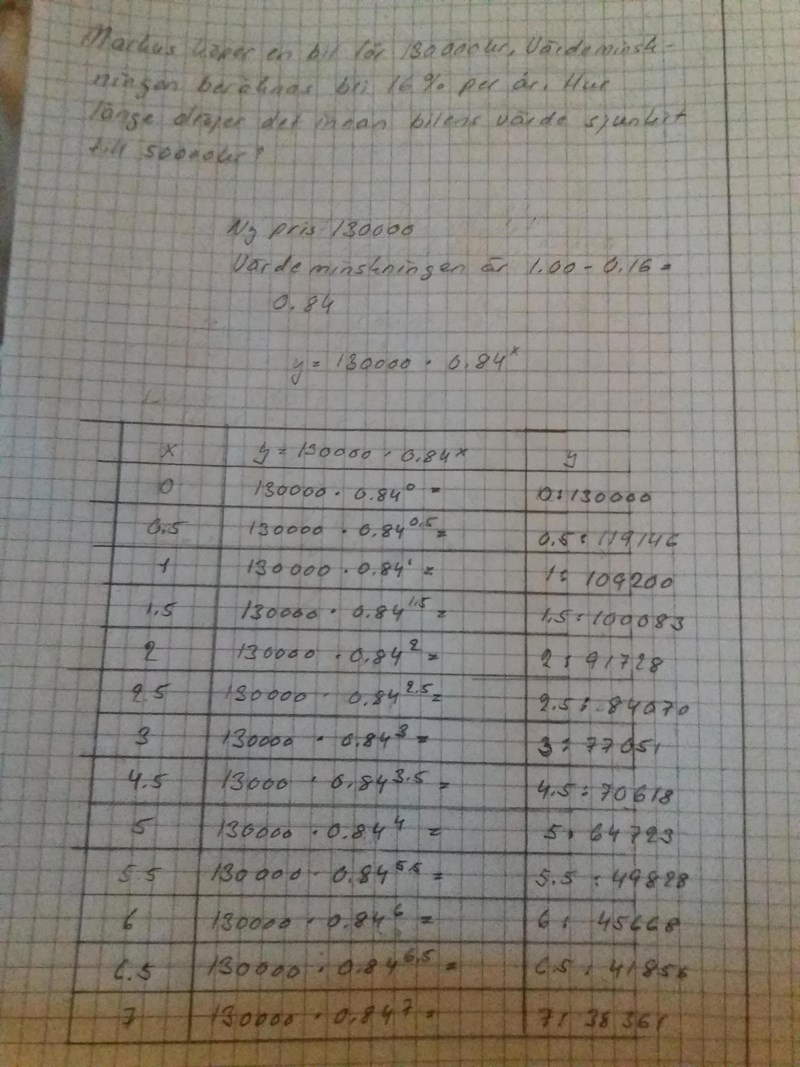 Markus köper en bil för 130000kr. Värdeminsk-
ningen beräknas bli 16% per år. Hur
länge dröjer det innan bilens värde sjunkit
till 50000kr?
Ny pris 130000
Värdeminskningen är 1.00 - 0.16 =
0.84
y = 130000 · 0.84ˣ
x y = 130000 · 0.84ˣ y
0 130000 · 0.84⁰ = 0:130000
0.5 130000 · 0.84^0,5 = 0.5:119146
1 130000 · 0.84¹ = 1: 109200
1,5 130000 · 0.84^1,5 = 1,5:100083
2 130000 · 0,84² = 2: 91728
2.5 130000 · 0.84^2.5 = 2.5: 84070
3 130000 · 0.84³ = 3: 77051
4.5 13000 · 0,84^3.5 = 4.5:70618
5 130000 · 0.84⁴ = 5: 64723
5.5 130000 · 0.84^5.5 = 5.5 :49828
6 130000 · 0.84⁶ = 6: 45668
6.5 130000 · 0.84^6,5 = 6.5 : 41856
7 130000 · 0,84⁷ = 7: 38361